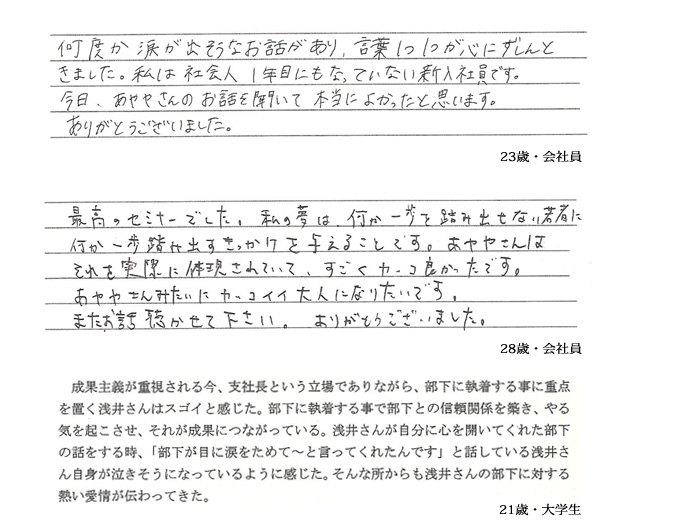 何度か涙が出そうなお話があり、言葉1つ1つが心にずしんと
きました。私は社会人1年目にもなっていない新入社員です。
今日、あややさんのお話を聞いて本当によかったと思います。
ありがとうございました。
23歳・会社員
最高のセミナーでした。私の夢は、何か一歩を踏み出せない若者に
何か一歩踏み出すきっかけを与えることです。あややさんは
それを実際に体現されていて、すごくカッコ良かったです。
あややさんみたいにカッコイイ大人になりたいです。
またお話聴かせて下さい。ありがとうございました。
28歳・会社員
成果主義が重視される今、支社長という立場でありながら、部下に執着する事に重点
を置く浅井さんはスゴイと感じた。部下に執着する事で部下との信頼関係を築き、やる
気を起こさせ、それが成果につながっている。浅井さんが自分に心を開いてくれた部下
の話をする時、「部下が目に涙をためて〜と言ってくれたんです」と話している浅井さ
ん自身が泣きそうになっているように感じた。そんな所からも浅井さんの部下に対する
熱い愛情が伝わってきた。
21歳・大学生